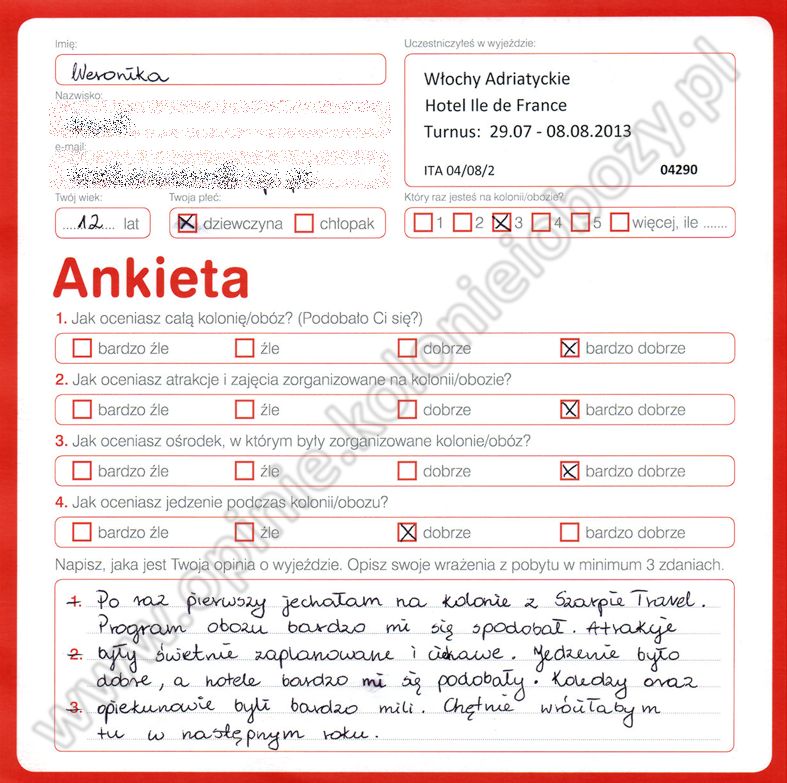 Imię:
Weronika
Nazwisko:
e-mail:
Twój wiek:
....12.... lat
Twoja płeć:
dziewczyna chłopak
Uczestniczyłeś w wyjeździe:
Włochy Adriatyckie
Hotel Ile de France
Turnus: 29.07 - 08.08.2013
ITA 04/08/2 04290
Który raz jesteś na kolonii/obozie?
1 2 3 4 5 więcej, ile .......
Ankieta
1. Jak oceniasz całą kolonię/obóz? (Podobało Ci się?)
bardzo źle źle dobrze bardzo dobrze
2. Jak oceniasz atrakcje i zajęcia zorganizowane na kolonii/obozie?
bardzo źle źle dobrze bardzo dobrze
3. Jak oceniasz ośrodek, w którym były zorganizowane kolonie/obóz?
bardzo źle źle dobrze bardzo dobrze
4. Jak oceniasz jedzenie podczas kolonii/obozu?
bardzo źle źle dobrze bardzo dobrze
Napisz, jaka jest Twoja opinia o wyjeździe. Opisz swoje wrażenia z pobytu w minimum 3 zdaniach.
1. Po raz pierwszy jechałam na kolonie z Szarpie Travel.
Program obozu bardzo mi się spodobał. Atrakcje
2. były świetnie zaplanowane i ciekawe. Jedzenie było
dobre, a hotele bardzo mi się podobały. Koledzy oraz
3. opiekunowie byli bardzo mili. Chętnie wróciłabym
tu w następnym roku.
www.opinie.kolonieiobozy.pl